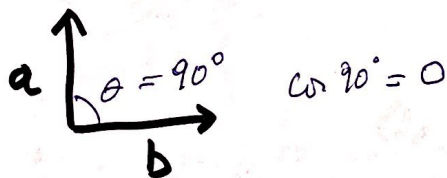 a θ = 90° cos 90° = 0
b